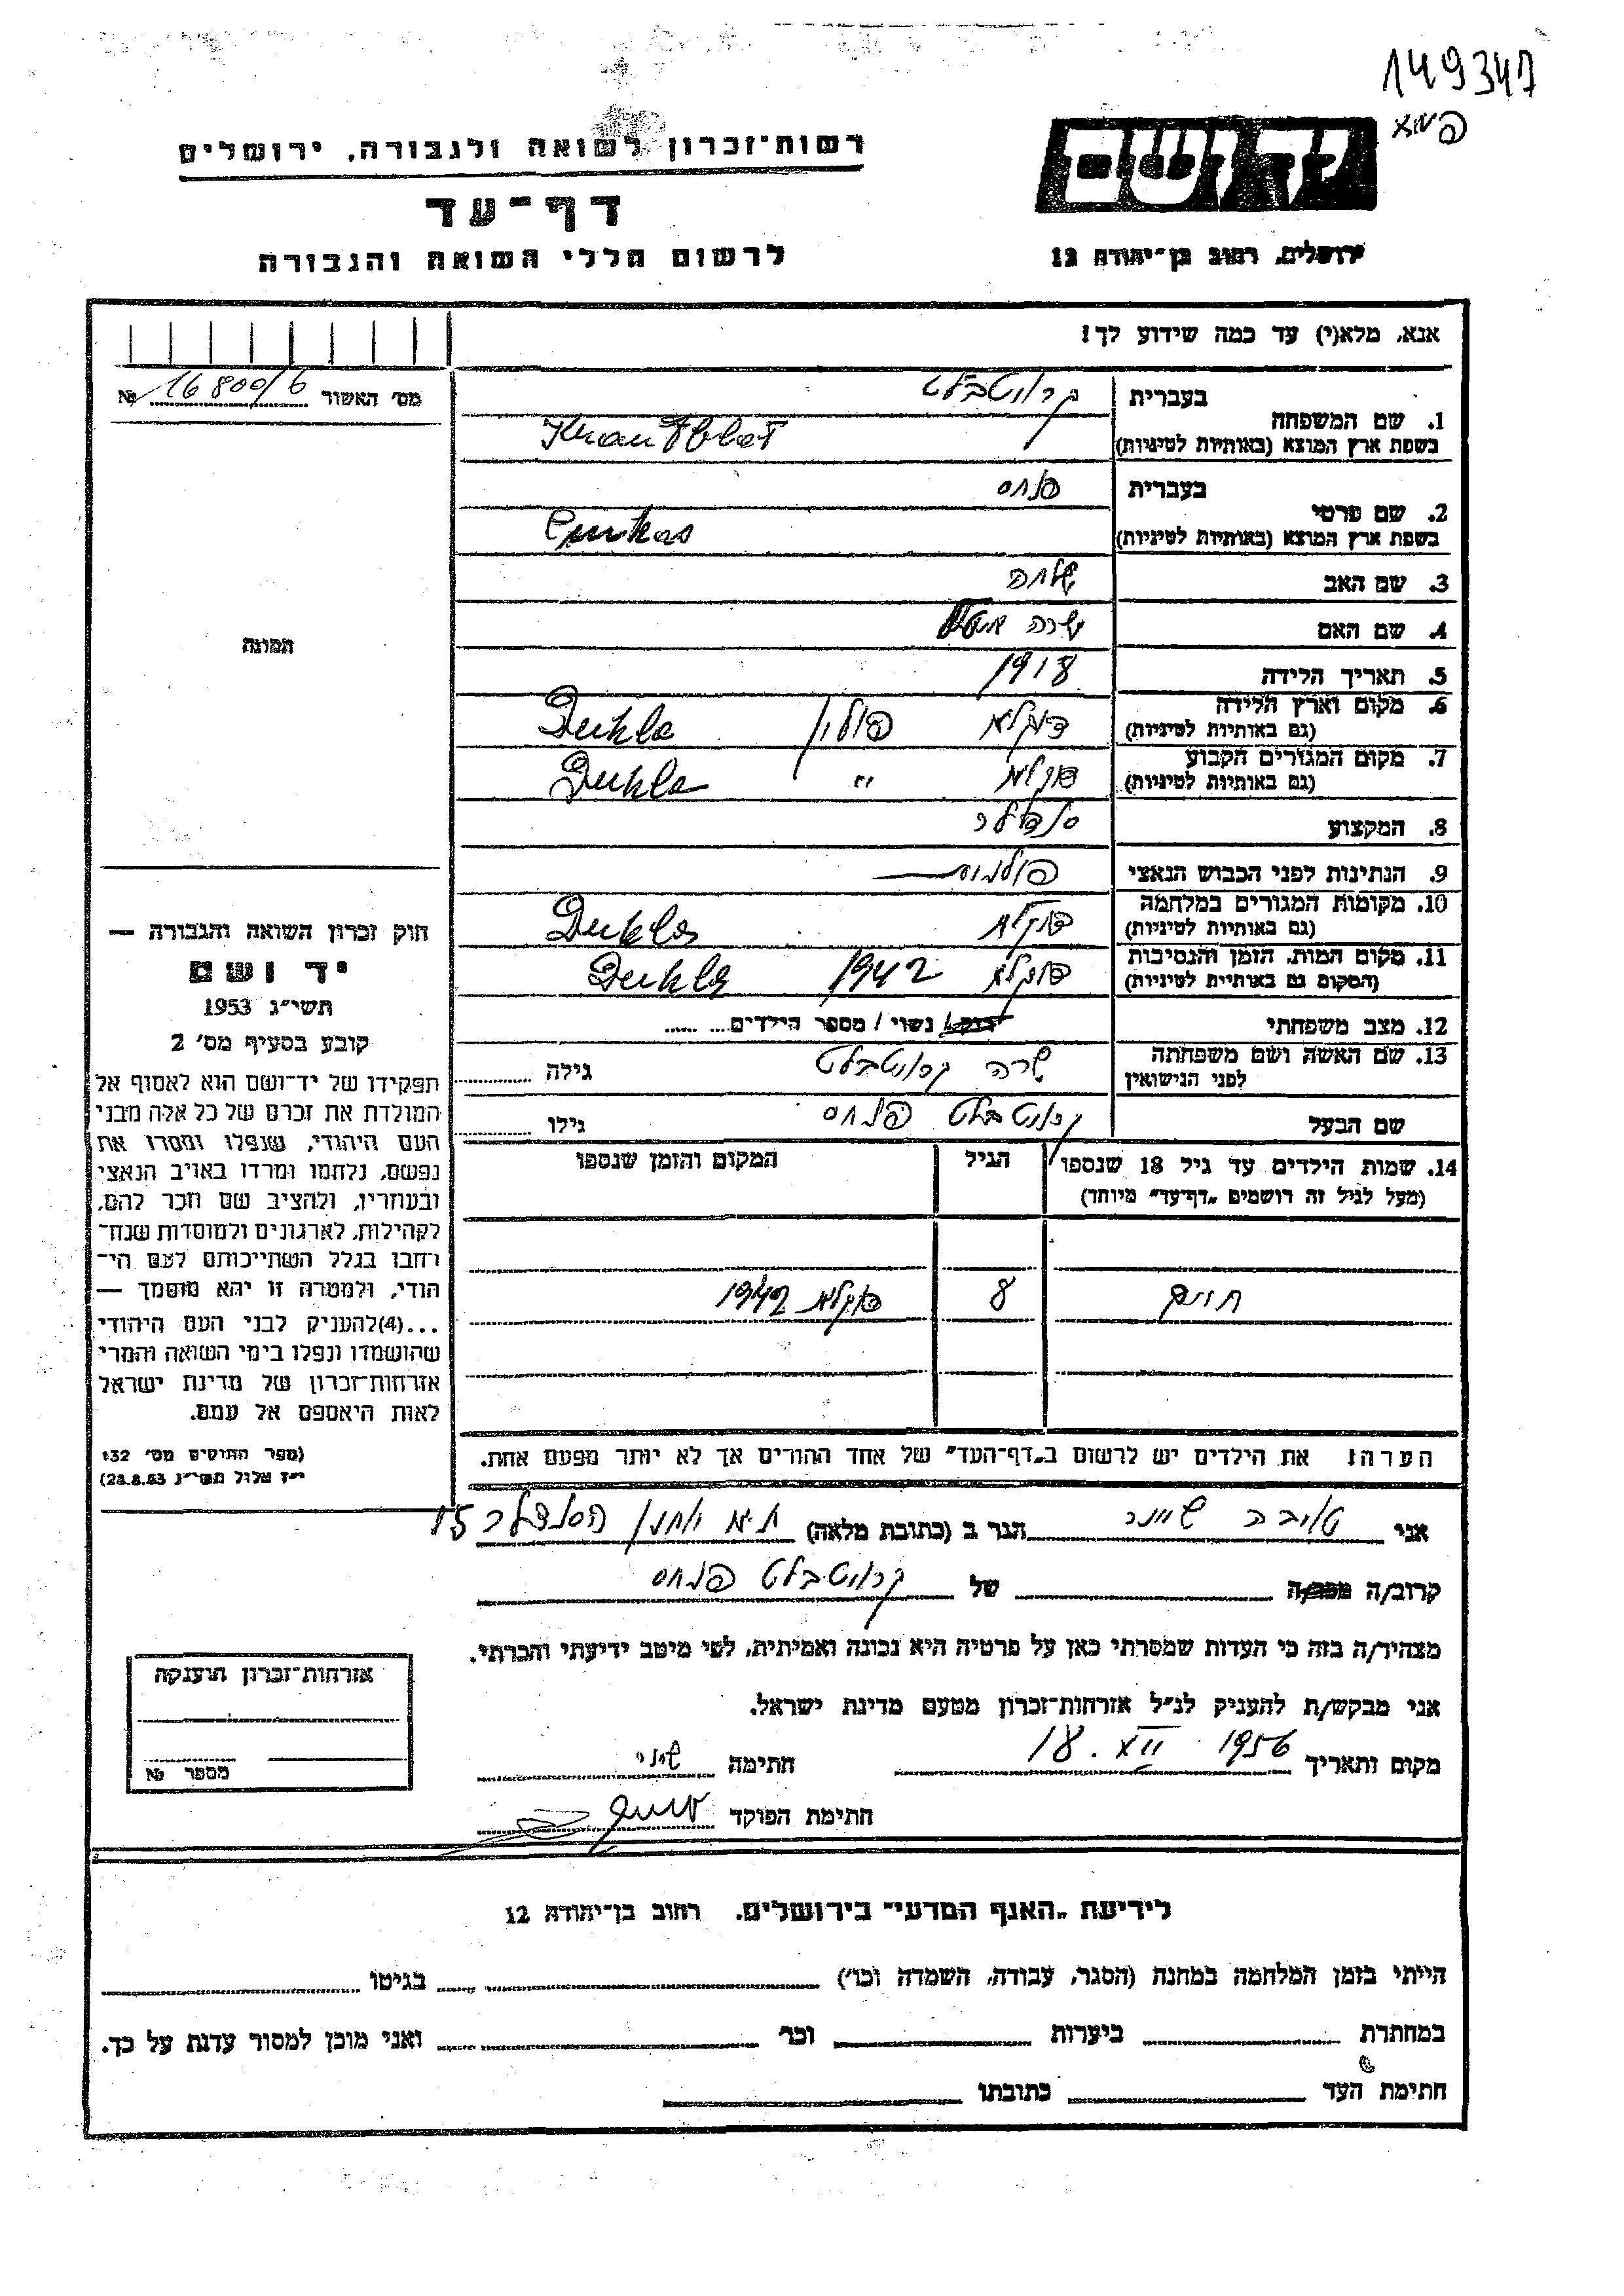 149347
יד ושם
רשות־זכרון לשואה ולגבורה, ירושלים
דף־עד
לרשום חללי השואה והגבורה
ירושלים, רחוב בן־יהודה 12
אנא, מלא(י) עד כמה שידוע לך!
מס׳ האשור № 16800/6
1. שם המשפחה
בעברית קראוטבלט
בשפת ארץ המוצא (באותיות לטיניות) Krautblat
2. שם פרטי
בעברית פנחס
בשפת ארץ המוצא (באותיות לטיניות)
3. שם האב
4. שם האם שרה
5. תאריך הלידה 1918
6. מקום וארץ הלידה דוקלא פולין Dukla
(גם באותיות לטיניות)
7. מקום המגורים הקבוע דוקלא " Dukla
(גם באותיות לטיניות)
8. המקצוע סנדלר
9. הנתינות לפני הכבוש הנאצי פולנית
10. מקומות המגורים במלחמה דוקלא Dukla
(גם באותיות לטיניות)
11. מקום המות, הזמן והנסיבות דוקלא 1942 Dukla
(המקום גם באותיות לטיניות)
12. מצב משפחתי רווק / נשוי / מספר הילדים
13. שם האשה ושם משפחתה שרה קראוטבלט גילה
לפני הנישואין
שם הבעל קראוטבלט פנחס גילו
14. שמות הילדים עד גיל 18 שנספו הגיל המקום והזמן שנספו
(מעל לגיל זה רושמים „דף־עד״ מיוחד)
8 דוקלא 1942
הערה: את הילדים יש לרשום ב„דף־העד״ של אחד ההורים אך לא יותר מפעם אחת.
תמונה
חוק זכרון השואה והגבורה —
יד ושם
תשי״ג 1953
קובע בסעיף מס׳ 2
תפקידו של יד־ושם הוא לאסוף אל
המולדת את זכרם של כל אלה מבני
העם היהודי, שנפלו ומסרו את
נפשם, נלחמו ומרדו באויב הנאצי
ובעוזריו, ולהציב שם וזכר להם,
לקהילות, לארגונים ולמוסדות שנח־
רבו בגלל השתייכותם לעם הי־
הודי, ולמטרה זו יהא מוסמך —
...(4)להעניק לבני העם היהודי
שהושמדו ונפלו בימי השואה והמרי
אזרחות־זכרון של מדינת ישראל
לאות היאספם אל עמם.
(ספר החוקים מס׳ 132
י״ז אלול תשי״ג 28.8.53)
אני טויבה הגר ב (כתובת מלאה) ת״א הסנדלר 15
קרוב/ה מכר/ה של קראוטבלט פנחס
מצהיר/ה בזה כי העדות שמסרתי כאן על פרטיה היא נכונה ואמיתית, לפי מיטב ידיעתי והכרתי.
אני מבקש/ת להעניק לנ״ל אזרחות־זכרון מטעם מדינת ישראל.
מקום ותאריך 18. XII. 1956 חתימה
חתימת הפוקד
אזרחות־זכרון הוענקה
מספר №
לידיעת „האגף המדעי״ בירושלים, רחוב בן־יהודה 12
הייתי בזמן המלחמה במחנה (הסגר, עבודה, השמדה וכו׳) בגיטו
במחתרת ביערות וכו׳ ואני מוכן למסור עדות על כך.
חתימת העד כתובתו